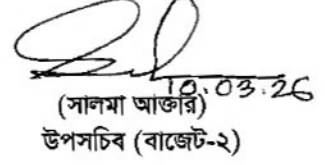 10.03.26
(সালমা আক্তার)
উপসচিব (বাজেট-২)